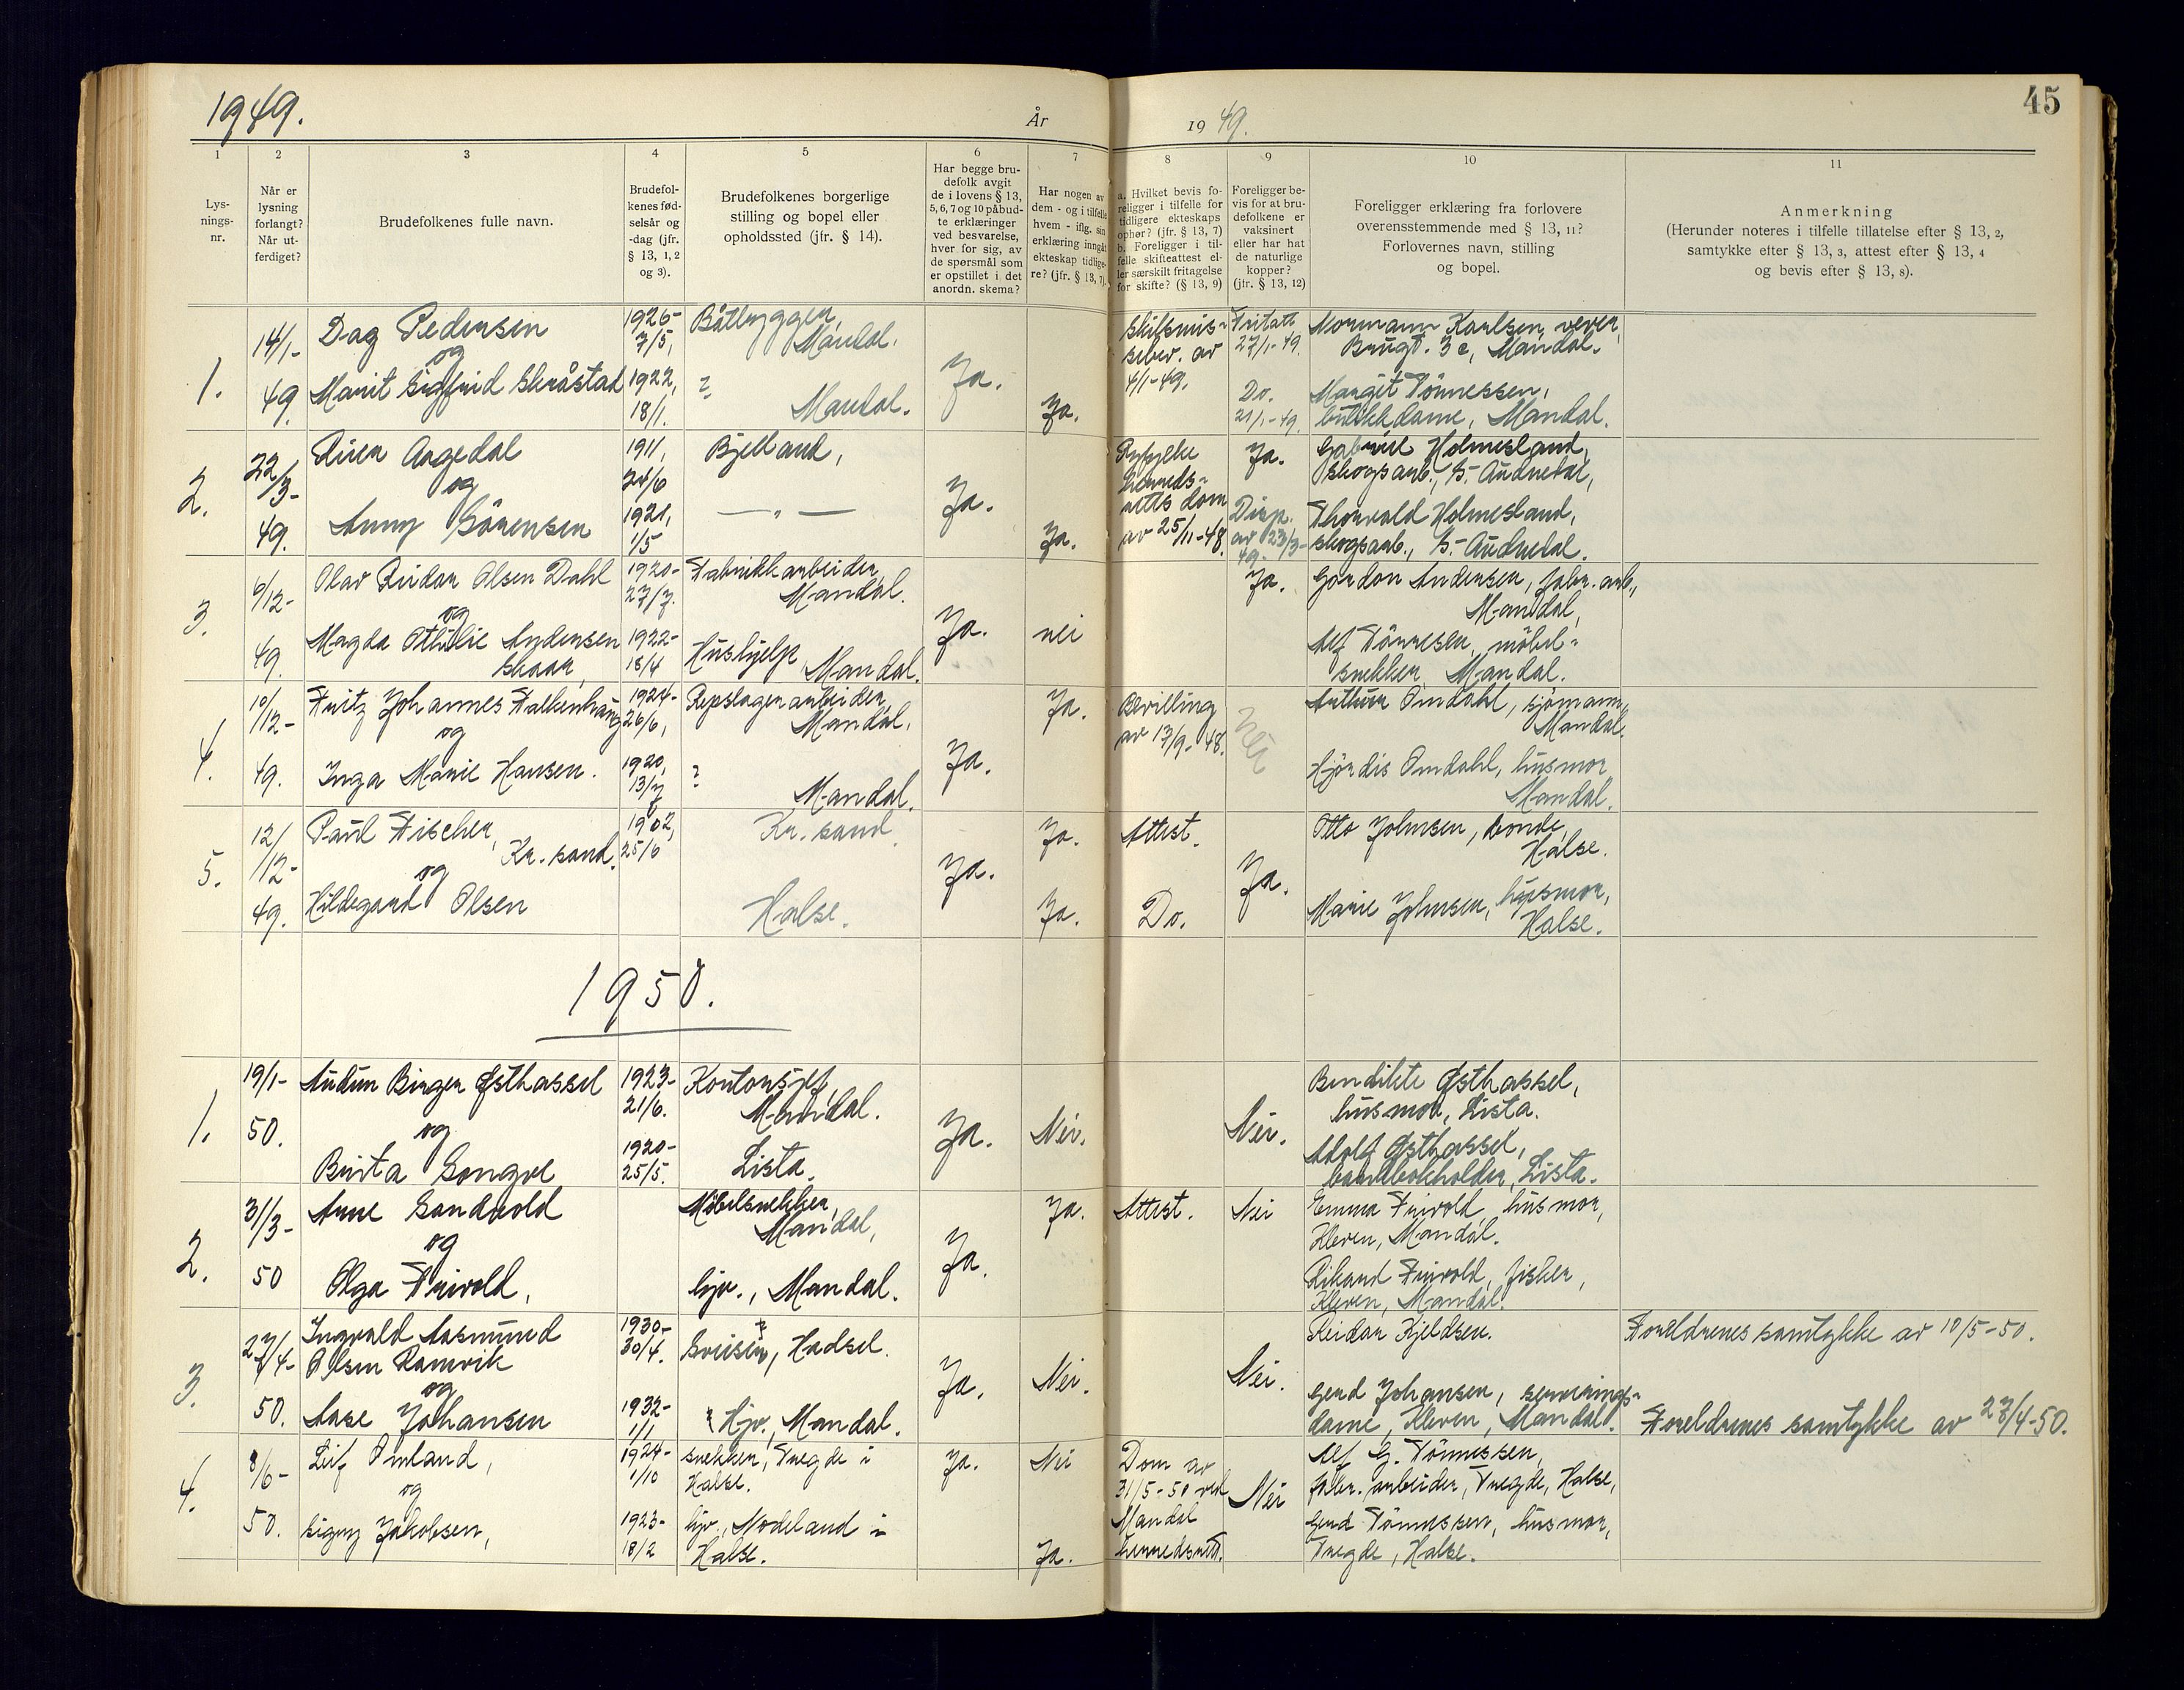 1949.
År
19 49.
45
1
2
3
4
5
6
7
8
9
10
11
Lys-
nings-
nr.
Når er
lysning
forlangt?
Når ut-
ferdiget?
Brudefolkenes fulle navn.
Brudefol-
kenes fød-
selsår og
-dag (jfr.
§ 13, 1, 2
og 3).
Brudefolkenes borgerlige
stilling og bopel eller
opholdssted (jfr. § 14).
Har begge bru-
defolk avgit
de i lovens § 13,
5, 6, 7 og 10 påbud-
te erklæringer
ved besvarelse,
hver for sig, av
de spørsmål som
er opstillet i det
anordn. skema?
Har nogen av
dem - og i tilfelle
hvem - iflg. sin
erklæring inngått
ekteskap tidlige-
re? (jfr. § 13, 7)
a. Hvilket bevis fo-
religger i tilfelle for
tidligere ekteskaps
ophør? (jfr. § 13, 7)
b. Foreligger i til-
felle skifteattest el-
ler særskilt fritagelse
for skifte? (§ 13, 9)
Foreligger be-
vis for at bru-
defolkene er
vaksinert
eller har hat
de naturlige
kopper?
(jfr. § 13, 12)
Foreligger erklæring fra forlovere
overensstemmende med § 13, 11?
Forlovernes navn, stilling
og bopel.
Anmerkning
(Herunder noteres i tilfelle tillatelse efter § 13, 2,
samtykke efter § 13, 3, attest efter § 13, 4
og bevis efter § 13, 8).
1.
14/1-
49
Dag Pedersen
og
Marit Sigfrid Skråstad
1926-
7/5,
1922,
18/1.
Båtbygger,
Mandal.
?
Mandal.
Ja.
Ja.
Skilsmis-
sebev. av
4/1-49.
Fritatt
27/1-49.
Do.
21/1-49.
Normann Karlsen, vever,
Brugt. 3c, Mandal.
Margit Tönnessen,
butikkdame, Mandal.
2.
22/3-
49.
Aagedal
og
Anny Sörensen
1911,
1921,
1/5
Bjelland,
— " —
Ja.
Ja.
Ryfylke
herreds-
retts dom
av 25/11-48.
Ja.
Disp.
av 23/3-
49.
Gabriel Holmesland,
skogsarb., S. Audnedal,
Thorvald Holmesland,
skogsarb., S. Audnedal.
3.
6/12-
49.
Olav Reidar Olsen Dahl
og
Magda Othilie Andersen
Skaar,
1920-
27/7.
1922-
18/4
Fabrikkarbeider,
Mandal.
Hushjelp
Mandal.
Ja.
nei
Ja.
Gordon Andersen, fabr. arb.,
Mandal,
Alf Tönnesen, möbel-
snekker, Mandal.
4.
10/12-
49.
Fritz Johannes Falkenhaug
og
Inga Marie Hansen.
1924-
26/6,
1920,
13/7
Repslagerarbeider,
Mandal.
?
Mandal.
Ja.
Ja.
Bevilling
av 17/9-48.
Nei
Arthur Omdahl, sjömann,
Mandal.
Hjördis Omdahl, husmor
Mandal.
5.
12/12-
49.
Paul Fischer,
Kr. sand.
og
Hildegard Olsen
1902,
25/6
Kr. sand
Halse.
Ja.
Ja.
Ja.
Attest.
Do.
Ja.
Otto Johnsen, bonde,
Halse.
Marie Johnsen, husmor,
Halse.
1950.
1.
19/1-
50.
Audun Birger Østhassel
og
Berta Gongve
1923-
21/6.
1920-
25/5.
Kontorsjef,
Mandal.
Lista.
Ja.
Nei.
Nei.
Bendikte Østhassel,
husmor, Lista.
Adolf Østhassel,
bankbokholder, Lista.
2.
31/3-
50
Arne Sandvold
og
Olga Fuivold,
Möbelsnekker,
Mandal,
hjv., Mandal.
Ja.
Ja.
Attest.
Nei
Emma Fuivold, husmor,
Kleven, Mandal.
Rikard Fuivold, fisker,
Kleven, Mandal.
3.
27/4-
50.
Ingvald Aasmund
Olsen Ramvik
og
Aase Johansen
1930-
30/4.
1932-
1/1
Hadsel.
Hjv., Mandal.
Ja.
Nei.
Nei.
Reidar Kjeldsen.
Gerd Johansen, serverings-
dame, Kleven, Mandal.
Foreldrenes samtykke av 10/5-50.
Foreldrenes samtykke av 27/4-50.
4.
8/6-
50.
Leif Omland,
og
Signy Jakobsen,
1924-
1/10
1923-
18/2
Snekker, Tregde i
Halse.
hjv., Nodeland i
Halse.
Ja.
Nei
Ja.
Dom av
31/5-50 ved
Mandal
herredsrett.
Nei
Alf G. Tönnessen,
fabr. arbeider, Tregde, Halse,
Gerd Tönnessen, husmor,
Tregde, Halse.